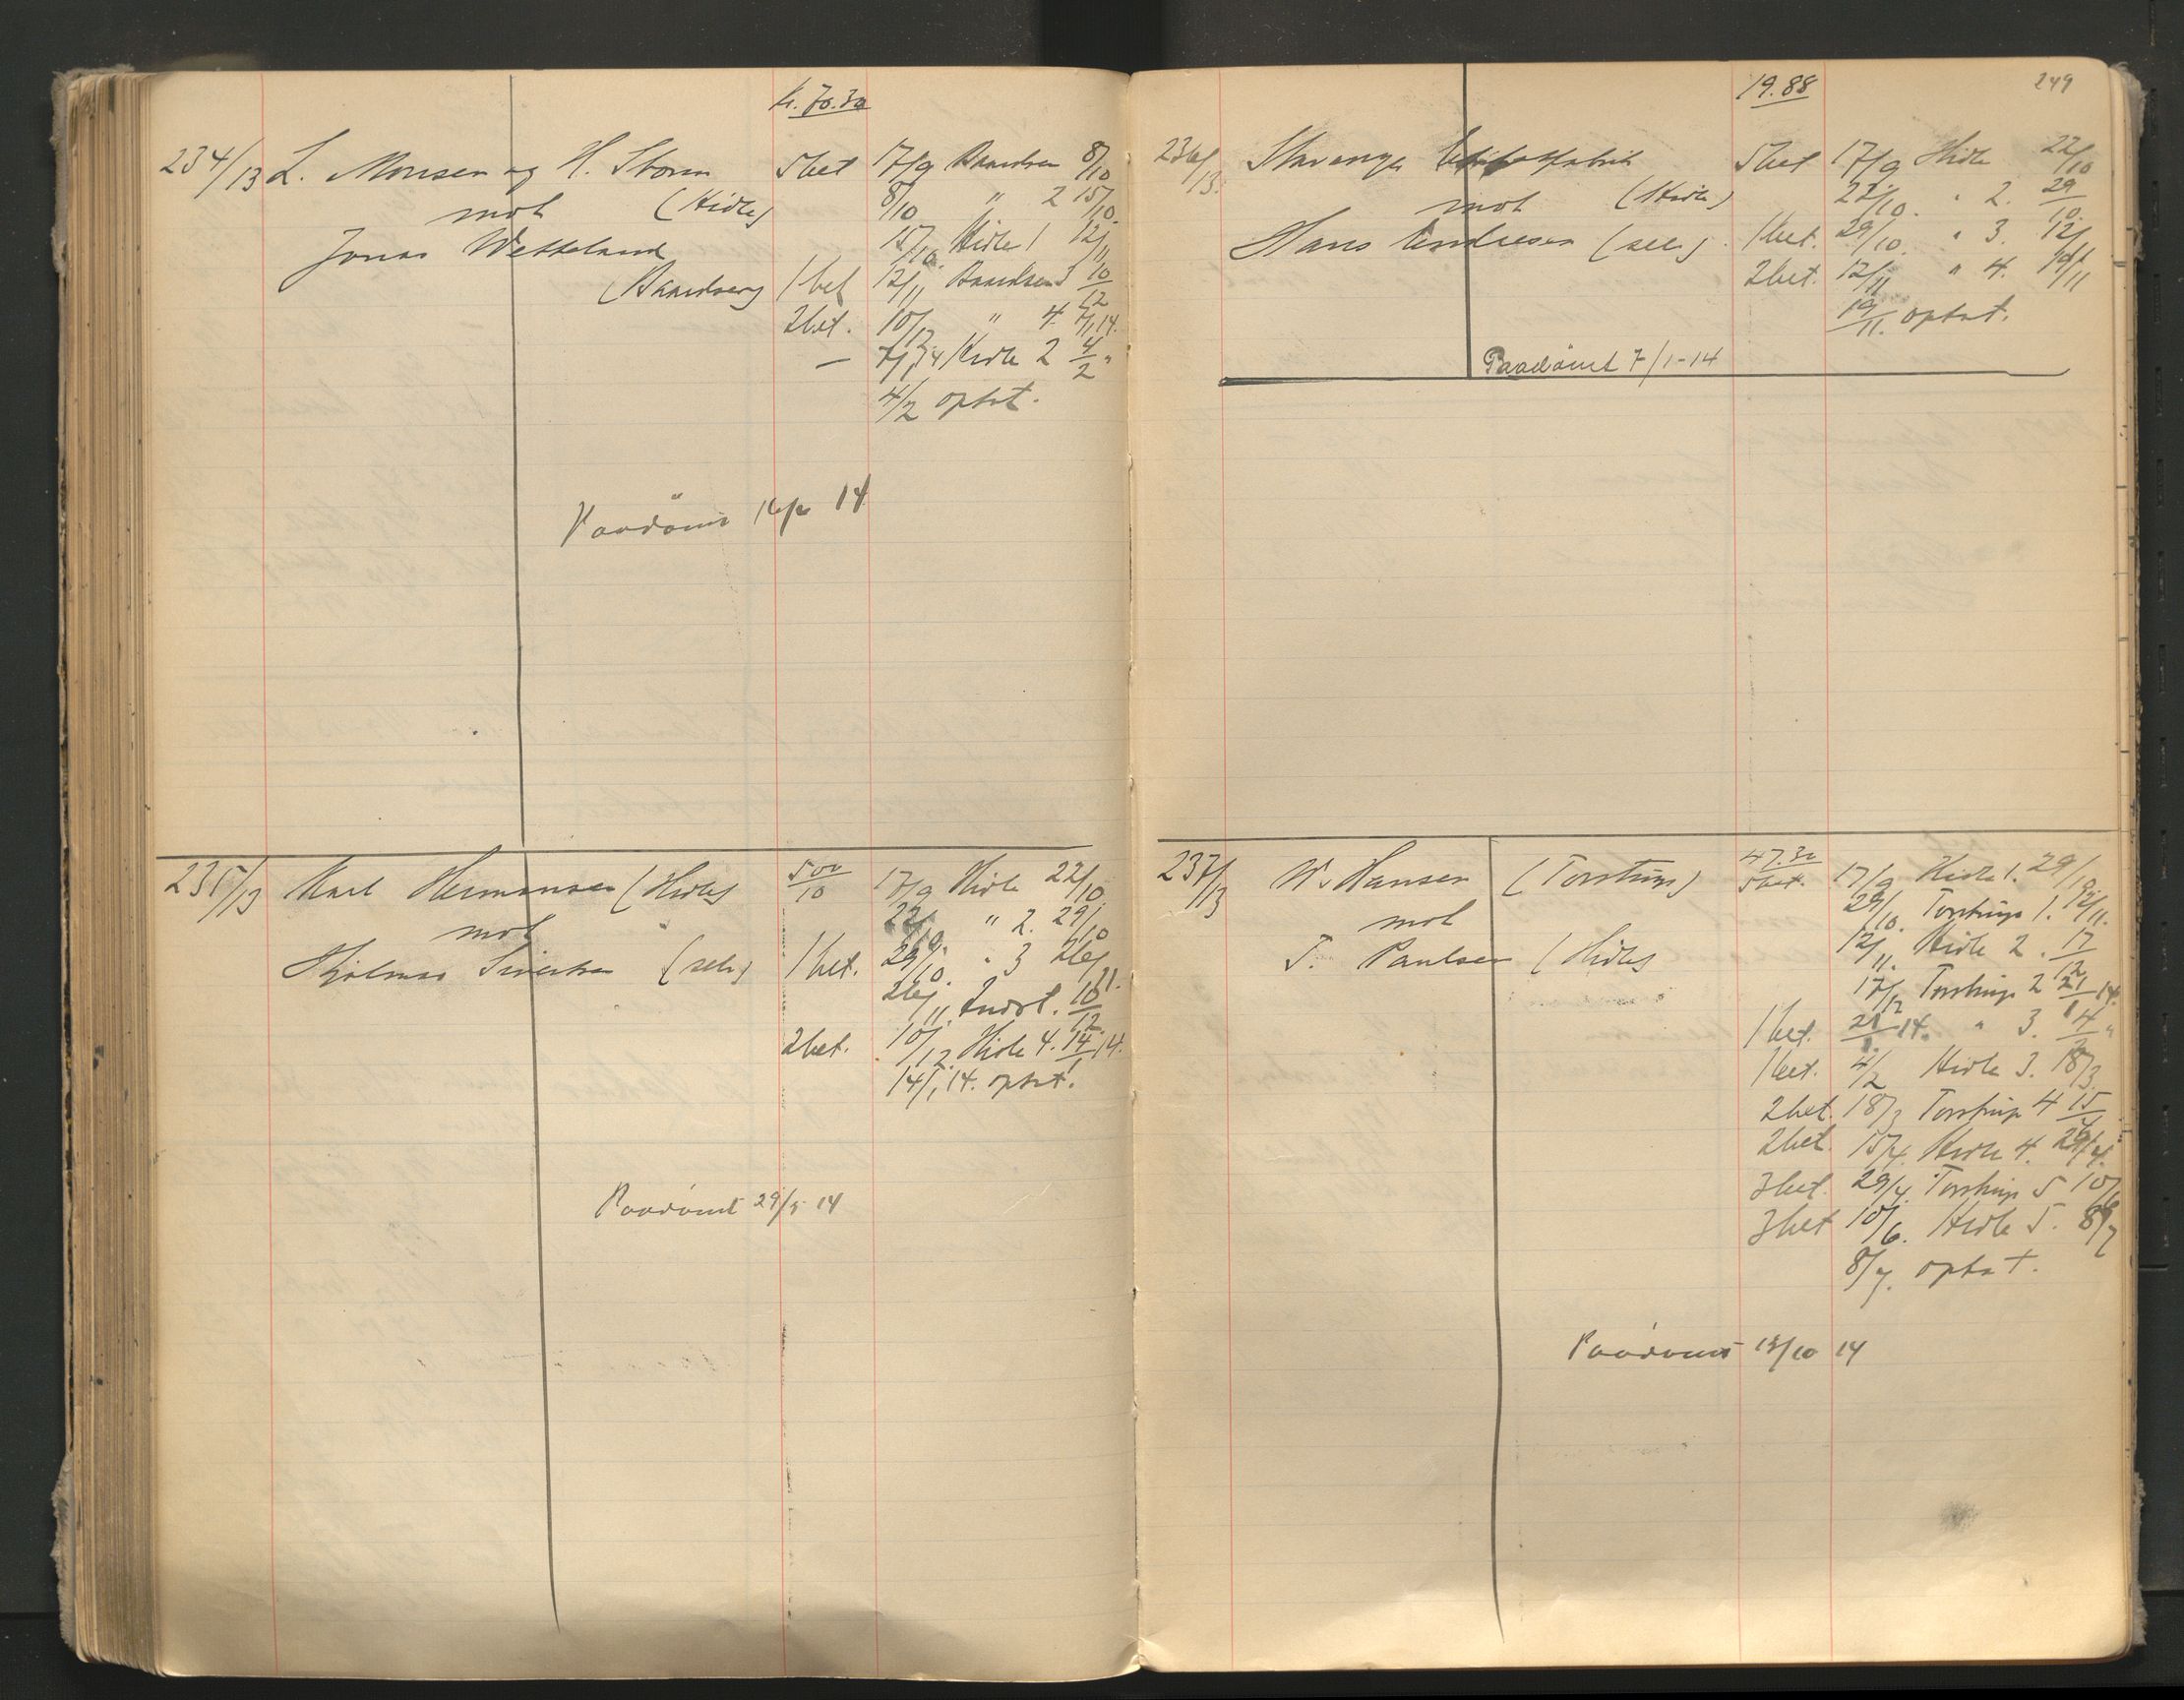 k. 70.30
234/13 L. Monsen og H. Storm 5bet 17/9 Baardsen 8/10
mot (Hidle) 8/10 " 2 15/10.
Jonas Wetteland 15/10. Hidle 1 12/11
(Baardsen) 1bet 12/11 Baardsen 3 10/12
2bet. 10/12 " 4. 7/1 14.
— 7/1 14 Hidle 2 4/2 "
4/2 optat.
Paadömt 14
235/13 Karl Hermansen (Hidle) 500/10 17/9 Hidle 22/10
mot 22/10. " 2. 29/10
Hjalmar Sivertsen (selv) 1bet. 29/10. " 3 26/11.
26/11. Indst. 10/12.
2bet. 10/12. Hidle 4. 14/1 14.
14/1 14. optat.
Paadömt 29/5 14
19.88 249
236/13. Stavanger 5bet 17/9 Hidle 22/10
mot (Hidle) 22/10. " 2. 29/10.
Hans Endresen (selv) 1bet. 29/10. " 3. 12/11
2bet. 12/11 " 4. 19/11
19/11. optat.
Paadömt 7/1-14
237/13 W. Hansen (Torstrup) 47.30 5bet. 17/9 Hidle 1. 29/10
mot 29/10. Torstrup 1. 12/11.
T. Paulsen (Hidle) 12/11. Hidle 2. 17/12
17/12 Torstrup 2 21/1 14.
1bet. 21/1 14. " 3. 4/2 "
1bet. 4/2 Hidle 3. 18/3.
2bet. 18/3 Torstrup 4 15/4
2bet. 15/4. Hidle 4. 29/4.
3bet. 29/4. Torstrup 5 10/6
3bet 10/6. Hidle 5. 8/7
8/7. optat.
Paadömt 13/10 14